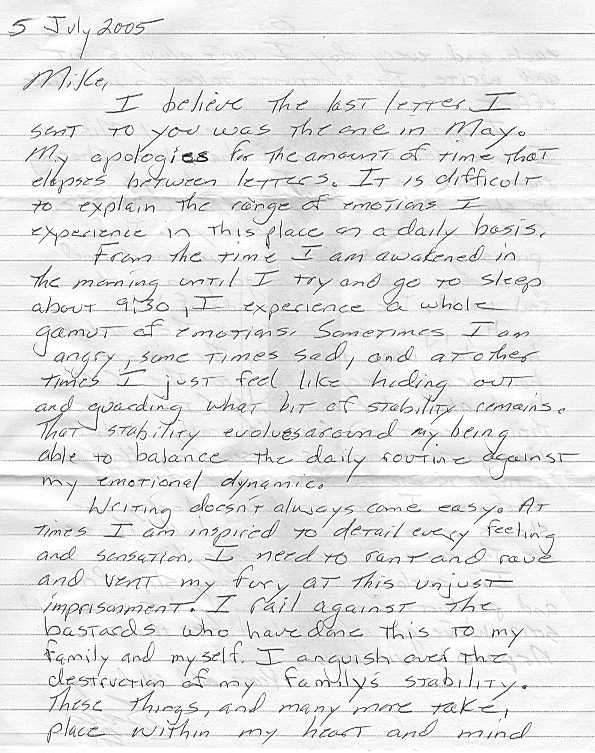 5 July 2005
Mike,
I believe the last letter I
sent to you was the one in May.
My apologies for the amount of time that
elapses between letters. It is difficult
to explain the range of emotions I
experience in this place on a daily basis.
From the time I am awakened in
the morning until I try and go to sleep
about 9:30, I experience a whole
gamut of emotions. Sometimes I am
angry, some times sad, and at other
times I just feel like hiding out
and guarding what bit of stability remains.
That stability evolves around my being
able to balance the daily routine against
my emotional dynamic.
Writing doesn't always come easy. At
times I am inspired to detail every feeling
and sensation. I need to rant and rave
and vent my fury at this unjust
imprisonment. I rail against the
bastards who have done this to my
family and myself. I anguish over the
destruction of my family's stability.
These things, and many more take,
place within my heart and mind